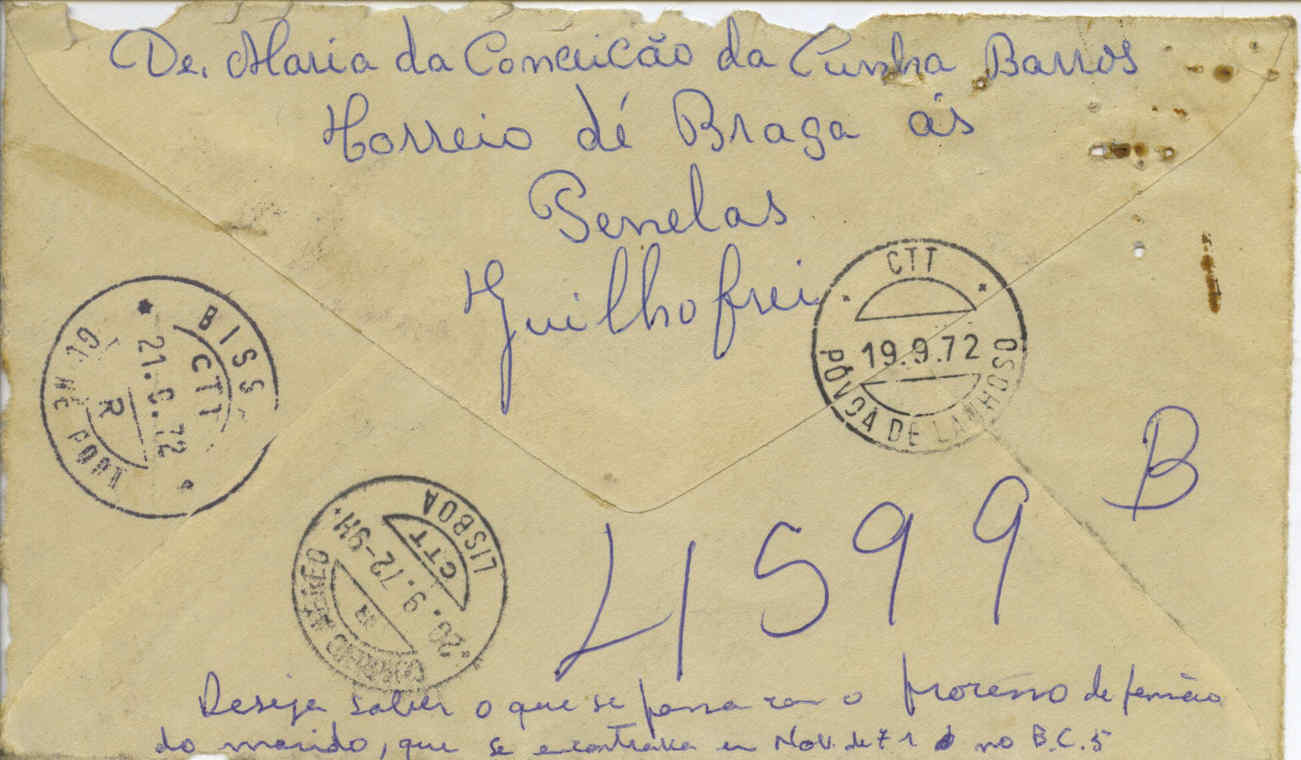 De. Maria da Conceicão da Cunha Barros
Correio dé Braga ás
Penelas
Guilhofrei
CTT
19.9.72
PÓVOA DE LANHOSO
BISS
CTT
21.9.72
R
LISBOA
CTT
20.9.72-9H
CORREIO AÉREO
R
B
4599
Deseja saber o que se passa com o processo de pensão
do marido, que se encontrava em Nov. de 71 no B.C.5